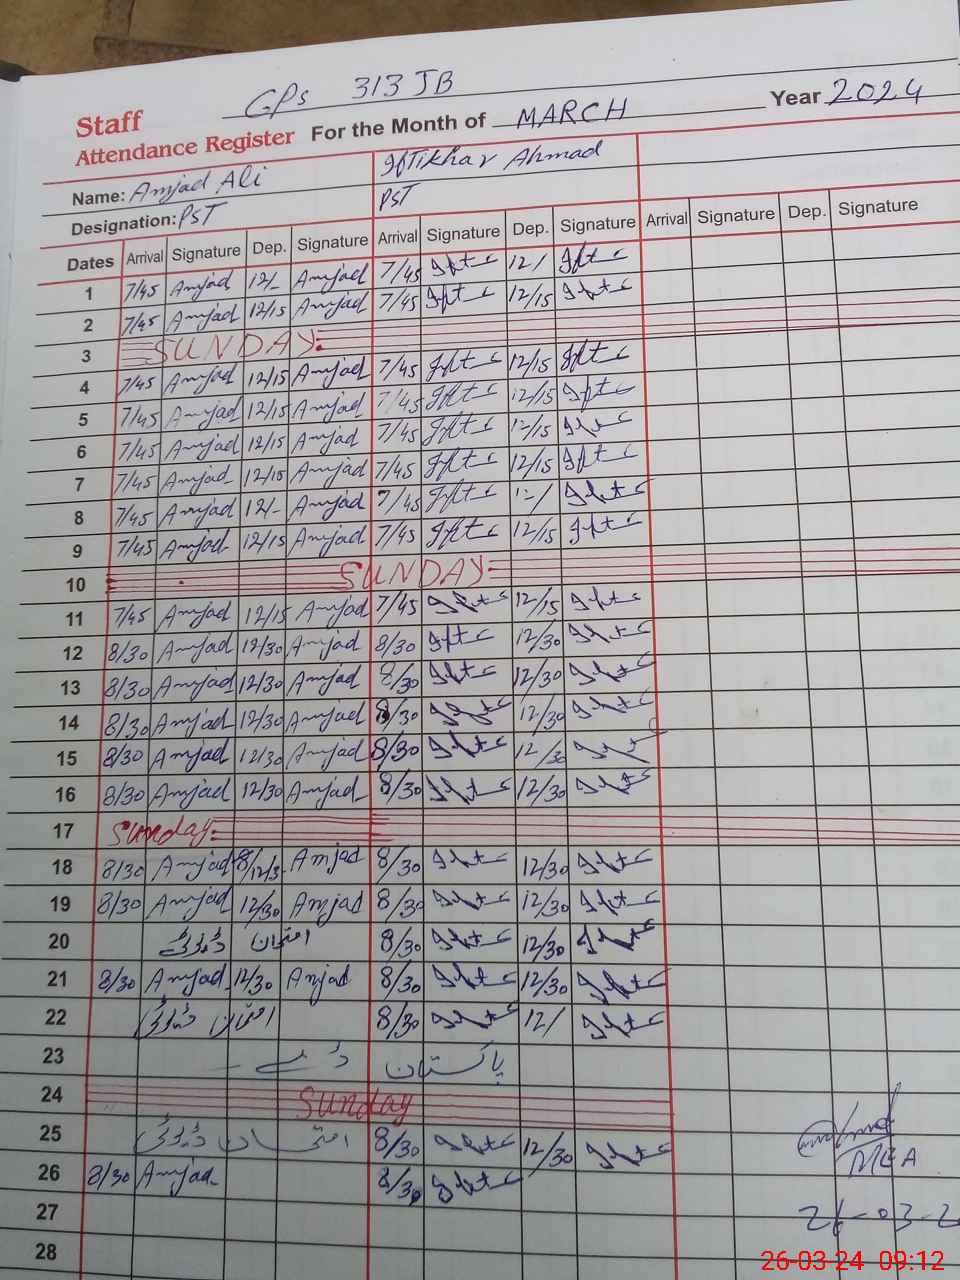 GPs 313 JB
Staff
Attendance Register For the Month of MARCH Year 2024
Name: Amjad Ali Iftikhar Ahmad
Designation: PST PST
Dates Arrival Signature Dep. Signature Arrival Signature Dep. Signature Arrival Signature Dep. Signature
1 7/45 Amjad 12/- Amjad 7/45 Ift 12/ Ift
2 7/45 Amjad 12/15 Amjad 7/45 Ift 12/15 Ift
3 SUNDAY
4 7/45 Amjad 12/15 Amjad 7/45 Ift 12/15 Ift
5 7/45 Amjad 12/15 Amjad 7/45 Ift 12/15 Ift
6 7/45 Amjad 12/15 Amjad 7/45 Ift 12/15 Ift
7 7/45 Amjad 12/15 Amjad 7/45 Ift 12/15 Ift
8 7/45 Amjad 12/- Amjad 7/45 Ift 12/ Ift
9 7/45 Amjad 12/15 Amjad 7/45 Ift 12/15 Ift
10 SUNDAY
11 7/45 Amjad 12/15 Amjad 7/45 Ift 12/15 Ift
12 8/30 Amjad 12/30 Amjad 8/30 Ift 12/30 Ift
13 8/30 Amjad 12/30 Amjad 8/30 Ift 12/30 Ift
14 8/30 Amjad 12/30 Amjad 8/30 Ift 12/30 Ift
15 8/30 Amjad 12/30 Amjad 8/30 Ift 12/30 Ift
16 8/30 Amjad 12/30 Amjad 8/30 Ift 12/30 Ift
17 Sunday
18 8/30 Amjad Amjad 8/30 Ift 12/30 Ift
19 8/30 Amjad 12/30 Amjad 8/30 Ift 12/30 Ift
20 امتحان ڈیوٹی 8/30 Ift 12/30 Ift
21 8/30 Amjad 12/30 Amjad 8/30 Ift 12/30 Ift
22 امتحان ڈیوٹی 8/30 Ift 12/ Ift
23 پاکستان ڈے
24 Sunday
25 امتحان ڈیوٹی 8/30 Ift 12/30 Ift
26 8/30 Amjad 8/30 Ift
MEA
27 26-03-2
28
26-03-24 09:12